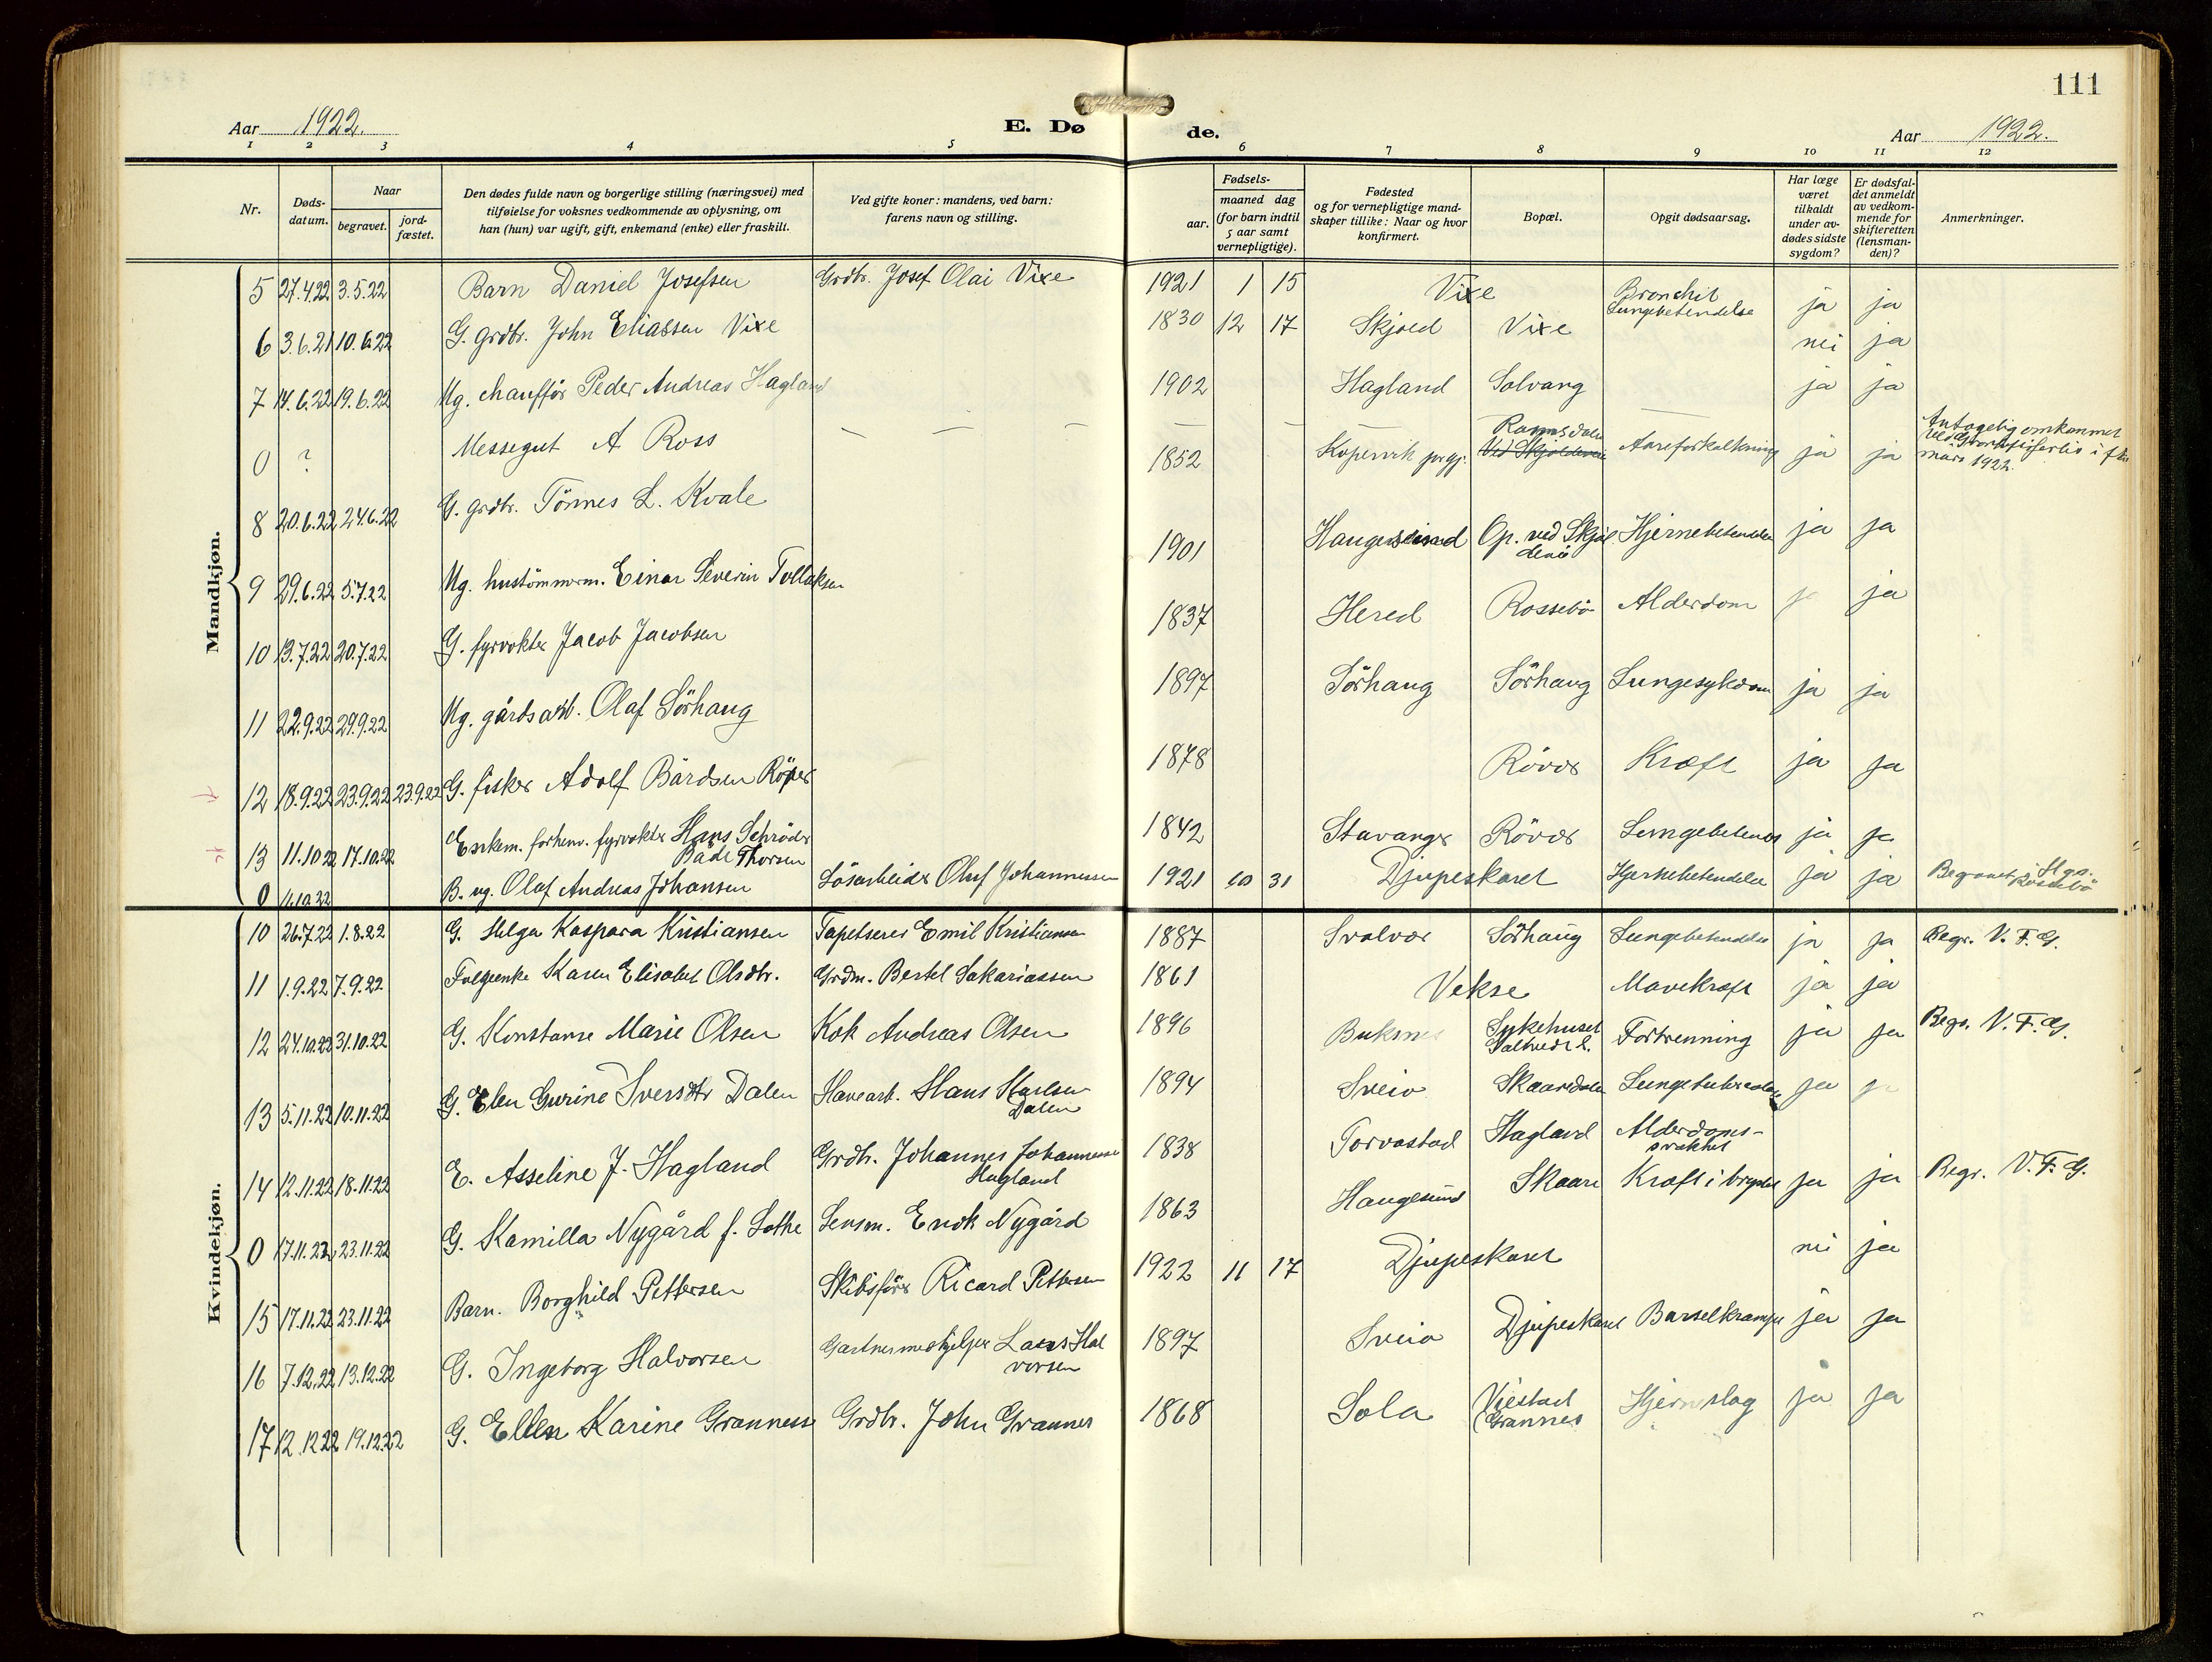 111
Aar 1922.
E. Dø
de.
Aar 1922.
1 2 3 4 5 6 7 8 9 10 11 12
Nr.
Døds-
datum.
Naar
begravet.
jord-
fæstet.
Den dødes fulde navn og borgerlige stilling (næringsvei) med
tilføielse for voksnes vedkommende av oplysning, om
han (hun) var ugift, gift, enkemand (enke) eller fraskilt.
Ved gifte koner: mandens, ved barn:
farens navn og stilling.
Fødsels-
aar.
maaned dag
(for barn indtil
5 aar samt
vernepligtige).
Fødested
og for vernepligtige mand-
skaper tillike: Naar og hvor
konfirmert.
Bopæl.
Opgit dødsaarsag.
Har læge
været
tilkaldt
under av-
dødes sidste
sygdom?
Er dødsfal-
det anmeldt
av vedkom-
mende for
skifteretten
(lensman-
den)?
Anmerkninger.
Mandkjøn.
5 27.4.22 3.5.22 Barn Daniel Josefsen Grdbr. Josef Olai Vixe 1921 1 15 Vixe Bronchit
Lungebetendelse ja ja
6 3.6.21 10.6.22 G. grdbr. John Eliassen Vixe 1830 12 17 Skjold Vixe nei ja
7 14.6.22 19.6.22 Ug. chaufför Peder Andreas Hagland 1902 Hagland Solvang ja ja
0 ? Messegut A Ross — — — — — — Antagelig omkommet
mars 1922.
8 20.6.22 24.6.22 G. grdbr. Tönnes L. Kvale 1852 Kopervik prgj. Ved Skjoldevei Aareforkalkning ja ja
9 29.6.22 5.7.22 Ug. hustömmerm. Einar Severin Tollaksen 1901 Haugesund Op. ved Skjol
devei Hjernebetendelse ja ja
10 13.7.22 20.7.22 G. fyrvokter Jacob Jacobsen 1837 Hered Rossebö Alderdom ja ja
11 22.9.22 29.9.22 Ug. gårdsarb. Olaf Sörhaug 1897 Sörhaug Sörhaug Lungesykdom ja ja
12 18.9.22 23.9.22 23.9.22 G. fisker Adolf Bårdsen Röver 1878 Rövær Kræft ja ja
13 11.10.22 17.10.22 Enkem. forhenv. fyrvokter Hans Schröder
Både Thorsen 1842 Stavanger Rövær Lungebetend ja ja
0 11.10.22 B. ug. Olaf Andreas Johansen Lösarbeider Oluf Johannessen 1921 10 31 Djupeskaret Hjernebetendelse ja ja Begravet i Hgs.
Rossebö
Kvindekjøn.
10 26.7.22 1.8.22 G. Helga Kaspara Kristiansen Tapetserer Emil Kristiansen 1887 Svolvær Sörhaug Lungebetendelse ja ja Begr. V. F. G.
11 1.9.22 7.9.22 Folgeenke Karen Elisabet Olsdtr. Grdm. Bertel Sakariassen 1861 Vekse Mavekræft ja ja
12 24.10.22 31.10.22 G. Konstanse Marie Olsen Kok Andreas Olsen 1896 Buksnes Sykehuset
Forbrenning ja ja Begr. V. F. G.
13 5.11.22 10.11.22 G. Elen Gurine Iversdtr Dalen Havearb. Hans Karlsen
Dalen 1894 Sveio Skaaredalen Lungetuberkulose ja ja
14 12.11.22 18.11.22 E. Asseline J. Hagland Grdbr. Johannes Johannessen
Hagland 1838 Torvastad Hagland Alderdoms-
svakhet
0 17.11.22 23.11.22 G. Kamilla Nygård f. Lothe Lensm. Endr Nygård 1863 Haugesund Skaare Kræft i brystet ja ja Begr. V. F. G.
15 17.11.22 23.11.22 Barn. Borghild Pettersen Skibsförer Ricard Pettersen 1922 11 17 Djupeskaret nei ja
16 7.12.22 13.12.22 G. Ingeborg Halvorsen Gartnermedhjelper Lars Hal
vorsen 1897 Sveio Djupeskaret Barselkrampe ja ja
17 12.12.22 19.12.22 G. Ellen Karine Granness Grdbr. John Grannes 1868 Sola Viestad
Grannes Hjernslag ja ja